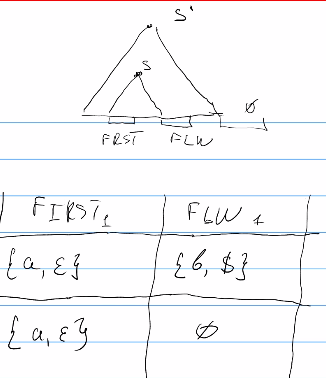 S'
S
∅
FRST FLW
FIRST₁ FLW₁
{a, ε} {b, $}
{a, ε} ∅